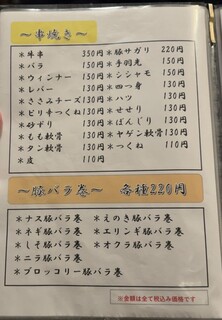 ～串焼き～
＊牛串 350円
＊バラ 150円
＊ウィンナー 150円
＊レバー 130円
＊ささみチーズ 130円
＊ピリ辛つくね 130円
＊砂ずり 130円
＊もも軟骨 130円
＊タン軟骨 130円
＊皮 110円
＊豚サガリ 220円
＊手羽先 150円
＊シシャモ 150円
＊四つ身 130円
＊ハツ 130円
＊せせり 130円
＊ぼんじり 130円
＊ヤゲン軟骨 130円
＊つくね 110円
～豚バラ巻～ 各種220円
＊ナス豚バラ巻
＊ネギ豚バラ巻
＊しそ豚バラ巻
＊ニラ豚バラ巻
＊ブロッコリー豚バラ巻
＊えのき豚バラ巻
＊エリンギ豚バラ巻
＊オクラ豚バラ巻
※金額は全て税込み価格です